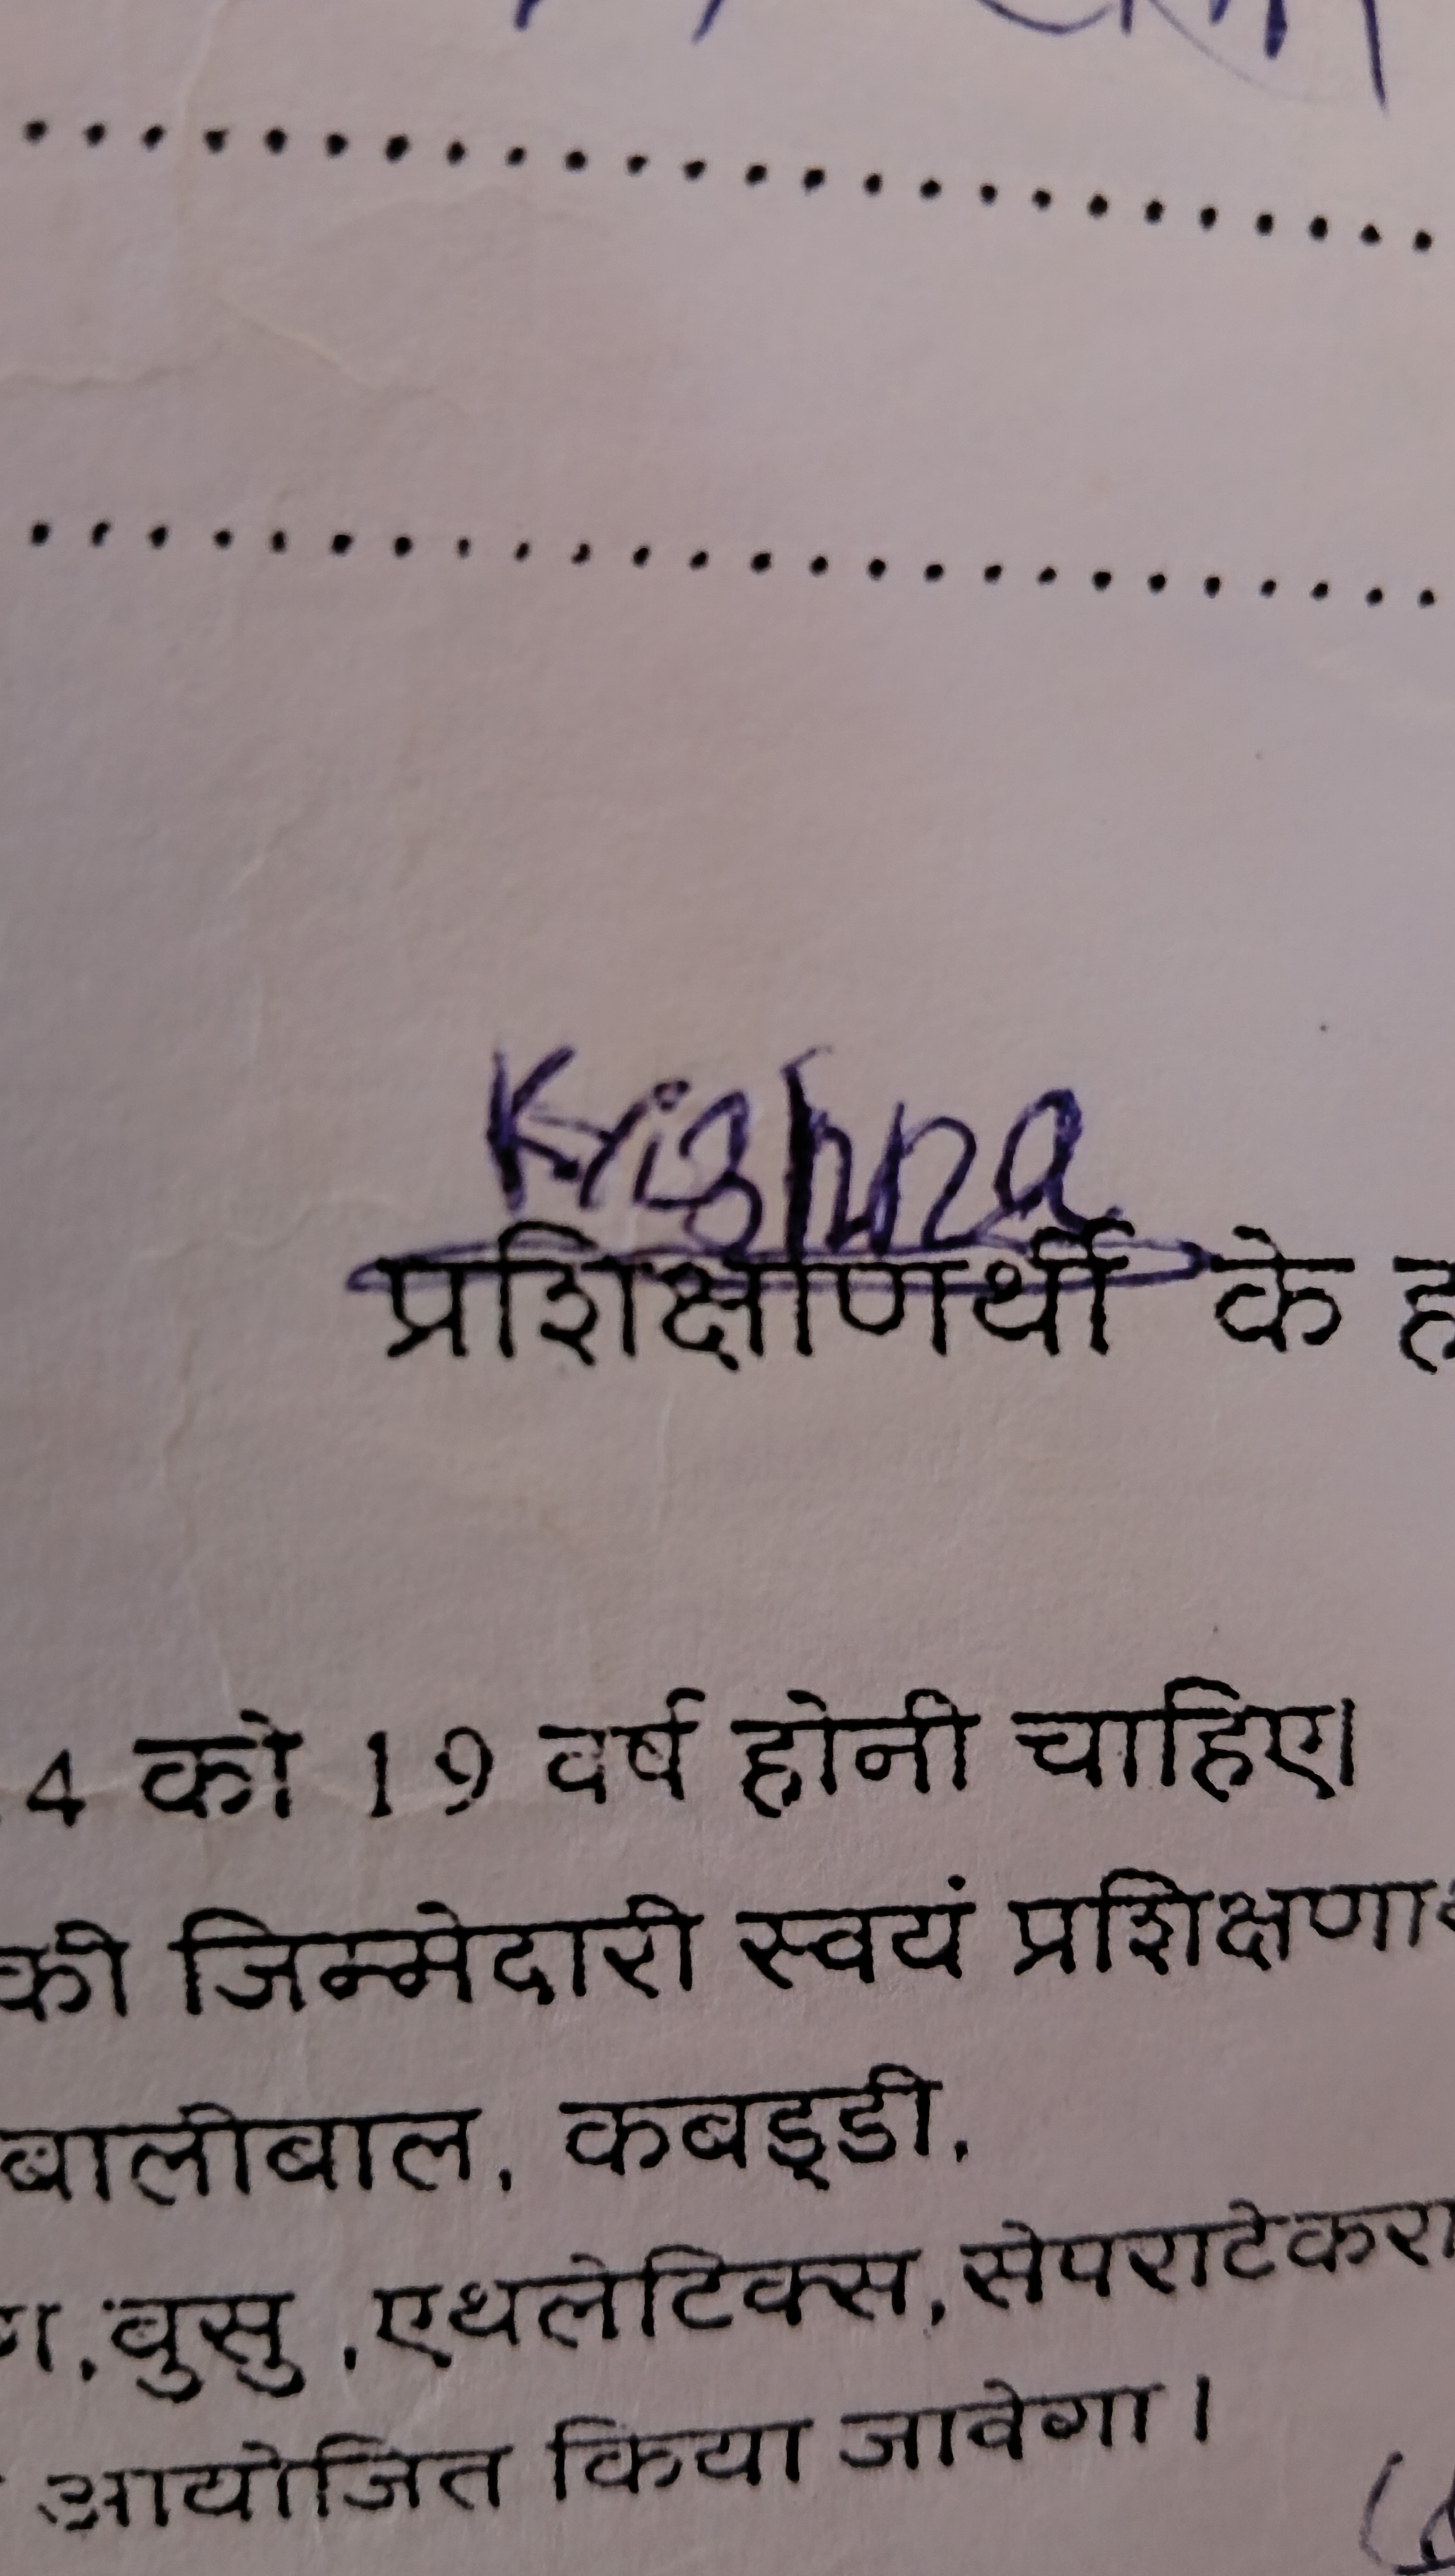 Krishna
प्रशिक्षाणर्थी के ह
4 को 19 वर्ष होनी चाहिए।
की जिम्मेदारी स्वयं प्रशिक्षणा
बालीबाल, कबड्डी,
वुसु ,एथलेटिक्स,सेपराटेकरा
आयोजित किया जावेगा।